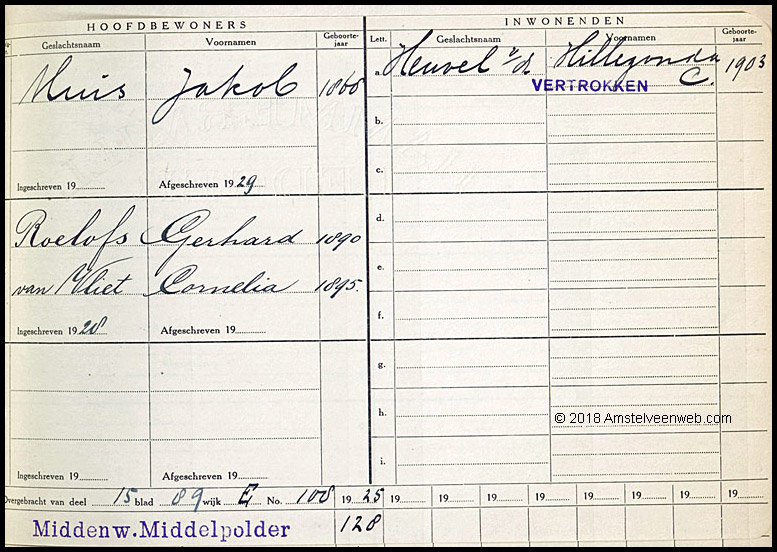 HOOFDBEWONERS
Geslachtsnaam Voornamen Geboorte-jaar
Muis Jakob 1866
Ingeschreven 19 Afgeschreven 1929
Roelofs Gerhard 1890
van Vliet Cornelia 1895.
Ingeschreven 1928 Afgeschreven 19
Ingeschreven 19 Afgeschreven 19
INWONENDEN
Lett. Geslachtsnaam Voornamen Geboorte-jaar
a. Heuvel v/d. Hillegonda C. 1903
VERTROKKEN
b.
c.
d.
e.
f.
g.
h.
i.
© 2018 Amstelveenweb.com
Overgebracht van deel 15 blad 89 wijk E No. 108 1925 19 19 19 19 19 19 19 19
Middenw.Middelpolder 128